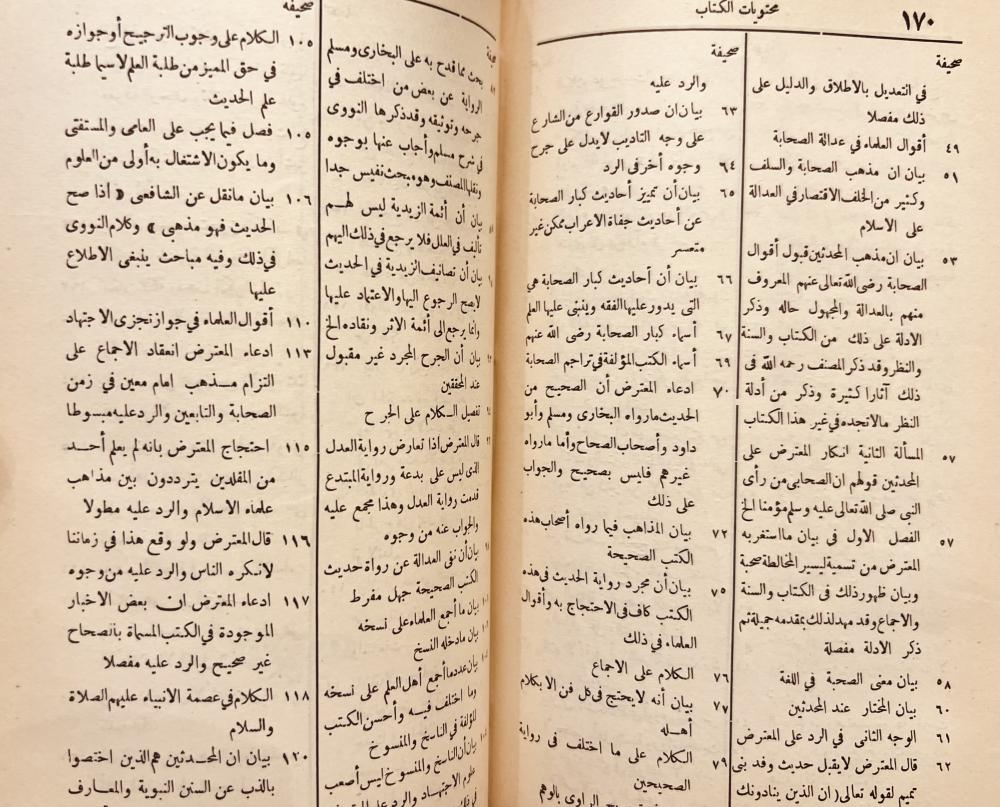 ١٧٠
محتويات الكتاب
صحيفة
في التعديل بالاطلاق والدليل على
ذلك مفصلا
٤٩ أقوال العلماء في عدالة الصحابة
٥١ بيان ان مذهب الصحابة والسلف
وكثير من الخلف الاقتصار في العدالة
على الاسلام
٥٣ بيان ان مذهب المحدثين قبول أقوال
الصحابة رضى الله تعالى عنهم المعروف
منهم بالعدالة والمجهول حاله وذكر
الادلة على ذلك من الكتاب والسنة
والنظر وقد ذكر المصنف رحمه الله فى
ذلك آثارا كثيرة وذكر من أدلة
النظر مالاتجده في غير هذا الكتاب
٥٧ المسألة الثانية انكار المعترض على
المحدثين قولهم ان الصحابى من رأى
النبى صلى الله تعالى عليه وسلم مؤمنا الخ
٥٧ الفصل الاول في بيان مااستغربه
المعترض من تسمية ليسير المخالطة صحبة
وبيان ظهور ذلك فى الكتاب والسنة
والاجماع وقد مهد لذلك بمقدمه جميلة ثم
ذكر الادلة مفصلة
٥٨ بيان معنى الصحبة في اللغة
٦٠ بيان المختار عند المحدثين
٦١ الوجه الثانى في الرد على المعترض
٦٢ قال المعترض لايقبل حديث وفد بنى
تميم لقوله تعالى ( ان الذين ينادونك
صحيفة
والرد عليه
٦٣ بيان ان صدور القوارع من الشارع
على وجه التاديب لايدل على جرح
٦٤ وجوه أخر فى الرد
٦٥ بيان أن تمييز أحاديث كبار الصحابة
عن أحاديث جفاة الاعراب ممكن غير
متعسر
٦٦ بيان أن أحاديث كبار الصحابة هى
التى يدور عليها الفقه وينبنى عليها العلم
٦٧ أسماء كبار الصحابة رضى الله عنهم
٦٩ أسماء الكتب المؤلفة في تراجم الصحابة
٧٠ ادعاء المعترض أن الصحيح من
الحديث مارواه البخارى ومسلم وأبو
داود وأصحاب الصحاح وأما مارواه
غيرهم فليس بصحيح والجواب
على ذلك
٧٢ بيان المذاهب فيما رواه أصحاب هذه
الكتب الصحيحة
٧٥ بيان أن مجرد رواية الحديث في هذه
الكتب كاف فى الاحتجاج به وأقوال
العلماء في ذلك
٧٦ الكلام على الاجماع
٧٧ بيان أنه لايحتج فى كل فن الا بكلام
أهله
٧٩ الكلام على ما اختلف فى رواية
الصحيحين
الراوى بالوهم
بحث مما قدح به على البخارى ومسلم
الرواية عن بعض من اختلف في
جرحه وتوثيقه وقد ذكرها النووى
في شرح مسلم وأجاب عنها بوجوه
ونقلها المصنف وهو مبحث نفيس جدا
بيان أن أئمة الزيدية ليس لهم
تأليف في العلل فلا يرجع في ذلك اليهم
بيان أن تصانيف الزيدية في الحديث
لايصح الرجوع اليها والاعتماد عليها
وانما يرجع الى أئمة الاثر ونقاده الخ
بيان أن الجرح المجرد غير مقبول
عند المحققين
تفصيل الكلام على الجرح
قال المعترض اذا تعارض رواية العدل
الذى ليس على بدعة ورواية المبتدع
قدمت رواية العدل وهذا مجمع عليه
والجواب عنه من وجوه
بيان أن نفى العدالة عن رواة حديث
الكتب الصحيحة جهل مفرط
بيان ما أجمع العلماء على نسخه
بيان مادخله النسخ
بيان عدد ما أجمع أهل العلم على نسخه
وما اختلف فيه وأحسن الكتب
المؤلفة في الناسخ والمنسوخ
بيان أن الناسخ والمنسوخ ليس أصعب
علوم الاجتهاد والرد على
صحيفة
١٠٥ الكلام على وجوب الترجيح أو جوازه
في حق المميز من طلبة العلم لاسيما طلبة
علم الحديث
١٠٥ فصل فيما يجب على العامى والمستفتى
وما يكون الاشتغال به أولى من العلوم
١٠٦ بيان مانقل عن الشافعى « اذا صح
الحديث فهو مذهبى » وكلام النووى
في ذلك وفيه مباحث ينبغى الاطلاع
عليها
١١٠ أقوال العلماء في جواز تجزى الاجتهاد
١١٣ ادعاء المعترض انعقاد الاجماع على
التزام مذهب امام معين في زمن
الصحابة والتابعين والرد عليه مبسوطا
١١٥ احتجاج المعترض بانه لم يعلم أحد
من المقلدين يترددون بين مذاهب
علماء الاسلام والرد عليه مطولا
١١٦ قال المعترض ولو وقع هذا في زماننا
لانكره الناس والرد عليه من وجوه
١١٧ ادعاء المعترض ان بعض الاخبار
الموجودة في الكتب المسماة بالصحاح
غير صحيح والرد عليه مفصلا
١١٨ الكلام في عصمة الانبياء عليهم الصلاة
والسلام
١٢٠ بيان ان المحدثين هم الذين اختصوا
بالذب عن السنن النبوية والمعارف